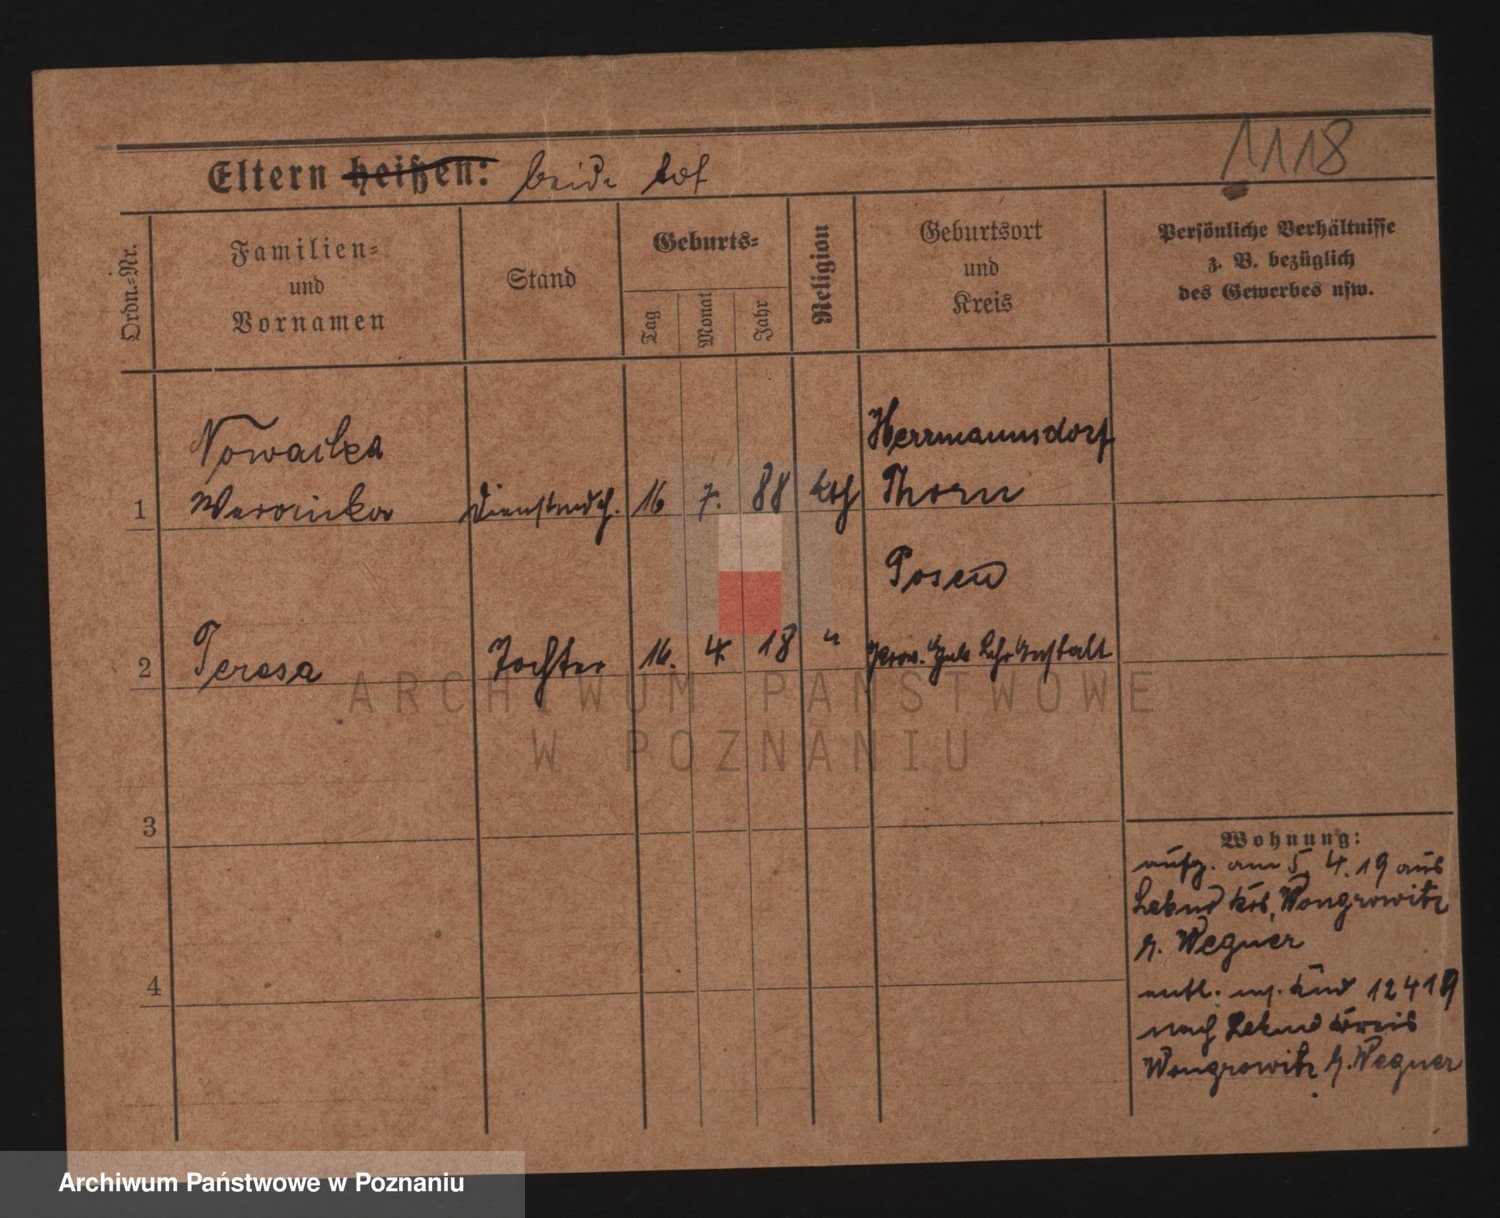 1118
Eltern heißen: beide tot
Ordn.=Nr.
Familien=
und
Vornamen
Stand
Geburts=
Tag
Monat
Jahr
Religion
Geburtsort
und
Kreis
Persönliche Verhältnisse
z. B. bezüglich
des Gewerbes usw.
Nowacka Herrmannsdorf
1 Weronika Dienstmdch. 16 7. 88 kth Thorn
Posen
2 Teresa Tochter 16. 4. 18 " Prov. Heb Lehr Anstalt
3
4
Wohnung:
aufg. am 5. 4. 19 aus
Lekno Krs. Wongrowitz
b. Wegner
entl. m. Kind 12 4 19
nach Lekno Kreis
Wongrowitz b. Wegner
ARCHIWUM PAŃSTWOWE
W POZNANIU
Archiwum Państwowe w Poznaniu